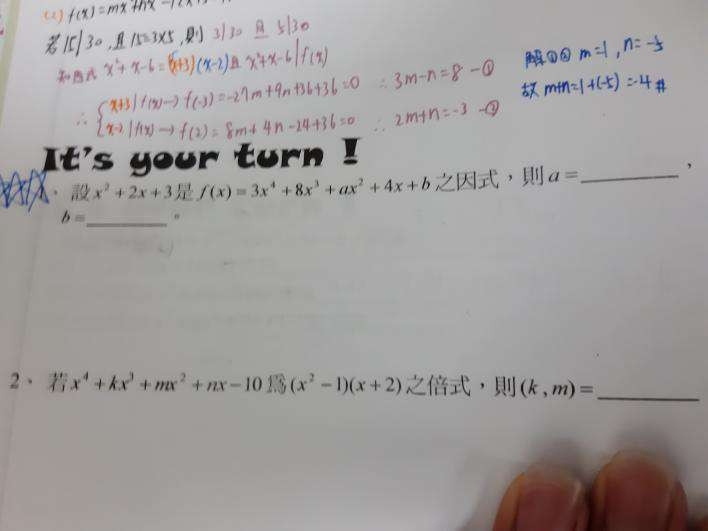 (2) f(x)=mx³+nx²
若15|30,且15=3x5,則 3|30 且 5|30
知因式 x²+x-6=(x+3)(x-2)且 x²+x-6|f(x)
∴ x+3|f(x)→f(-3)=-27m+9n+36+36=0 ∴3m-n=8-①
x-2|f(x)→f(2)=8m+4n-24+36=0 ∴2m+n=-3-②
解①② m=1, n=-5
故m+n=1+(-5)=-4#
It's your turn!
、設x²+2x+3是f(x)=3x⁴+8x³+ax²+4x+b之因式,則a=________,
b=________。
2、若x⁴+kx³+mx²+nx-10爲(x²-1)(x+2)之倍式,則(k,m)=________